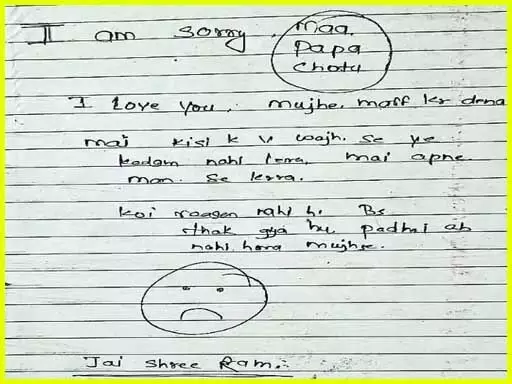 I am sorry, maa
Papa
Chotu
I love you. mujhe. maff kr dena
mai kisi k v wajh. se ye
kadam nahi lera, mai apne
man. se krra.
koi reason nahi h. Bs
thak gya hu padhai ab
nahi hora mujhse.
Jai Shree Ram.